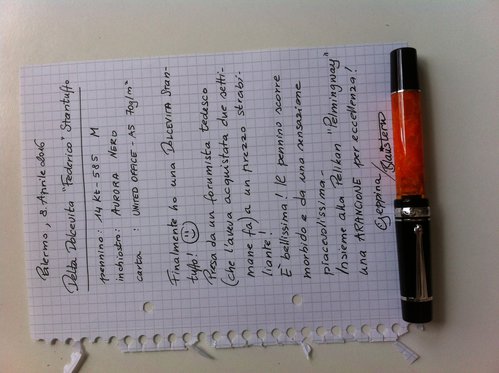 Palermo, 8 Aprile 2016
Delta Dolcevita "Federico" Stantuffo
pennino: 14 Kt - 585 M
inchiostro: AURORA NERO
carta : UNITED OFFICE - A5 70g/m²
Finalmente ho una DOLCEVITA Stan-
tuffo!
Presa da un forumista tedesco
(che l'aveva acquistata due setti-
mane fa) a un prezzo strabi-
liante!
È bellissima! Il pennino scorre
morbido e dà una sensazione
piacevolissima.
Insieme alla Pelikan "Pemingway"
una ARANCIONE per eccellenza!
Geppina/
Blaustern